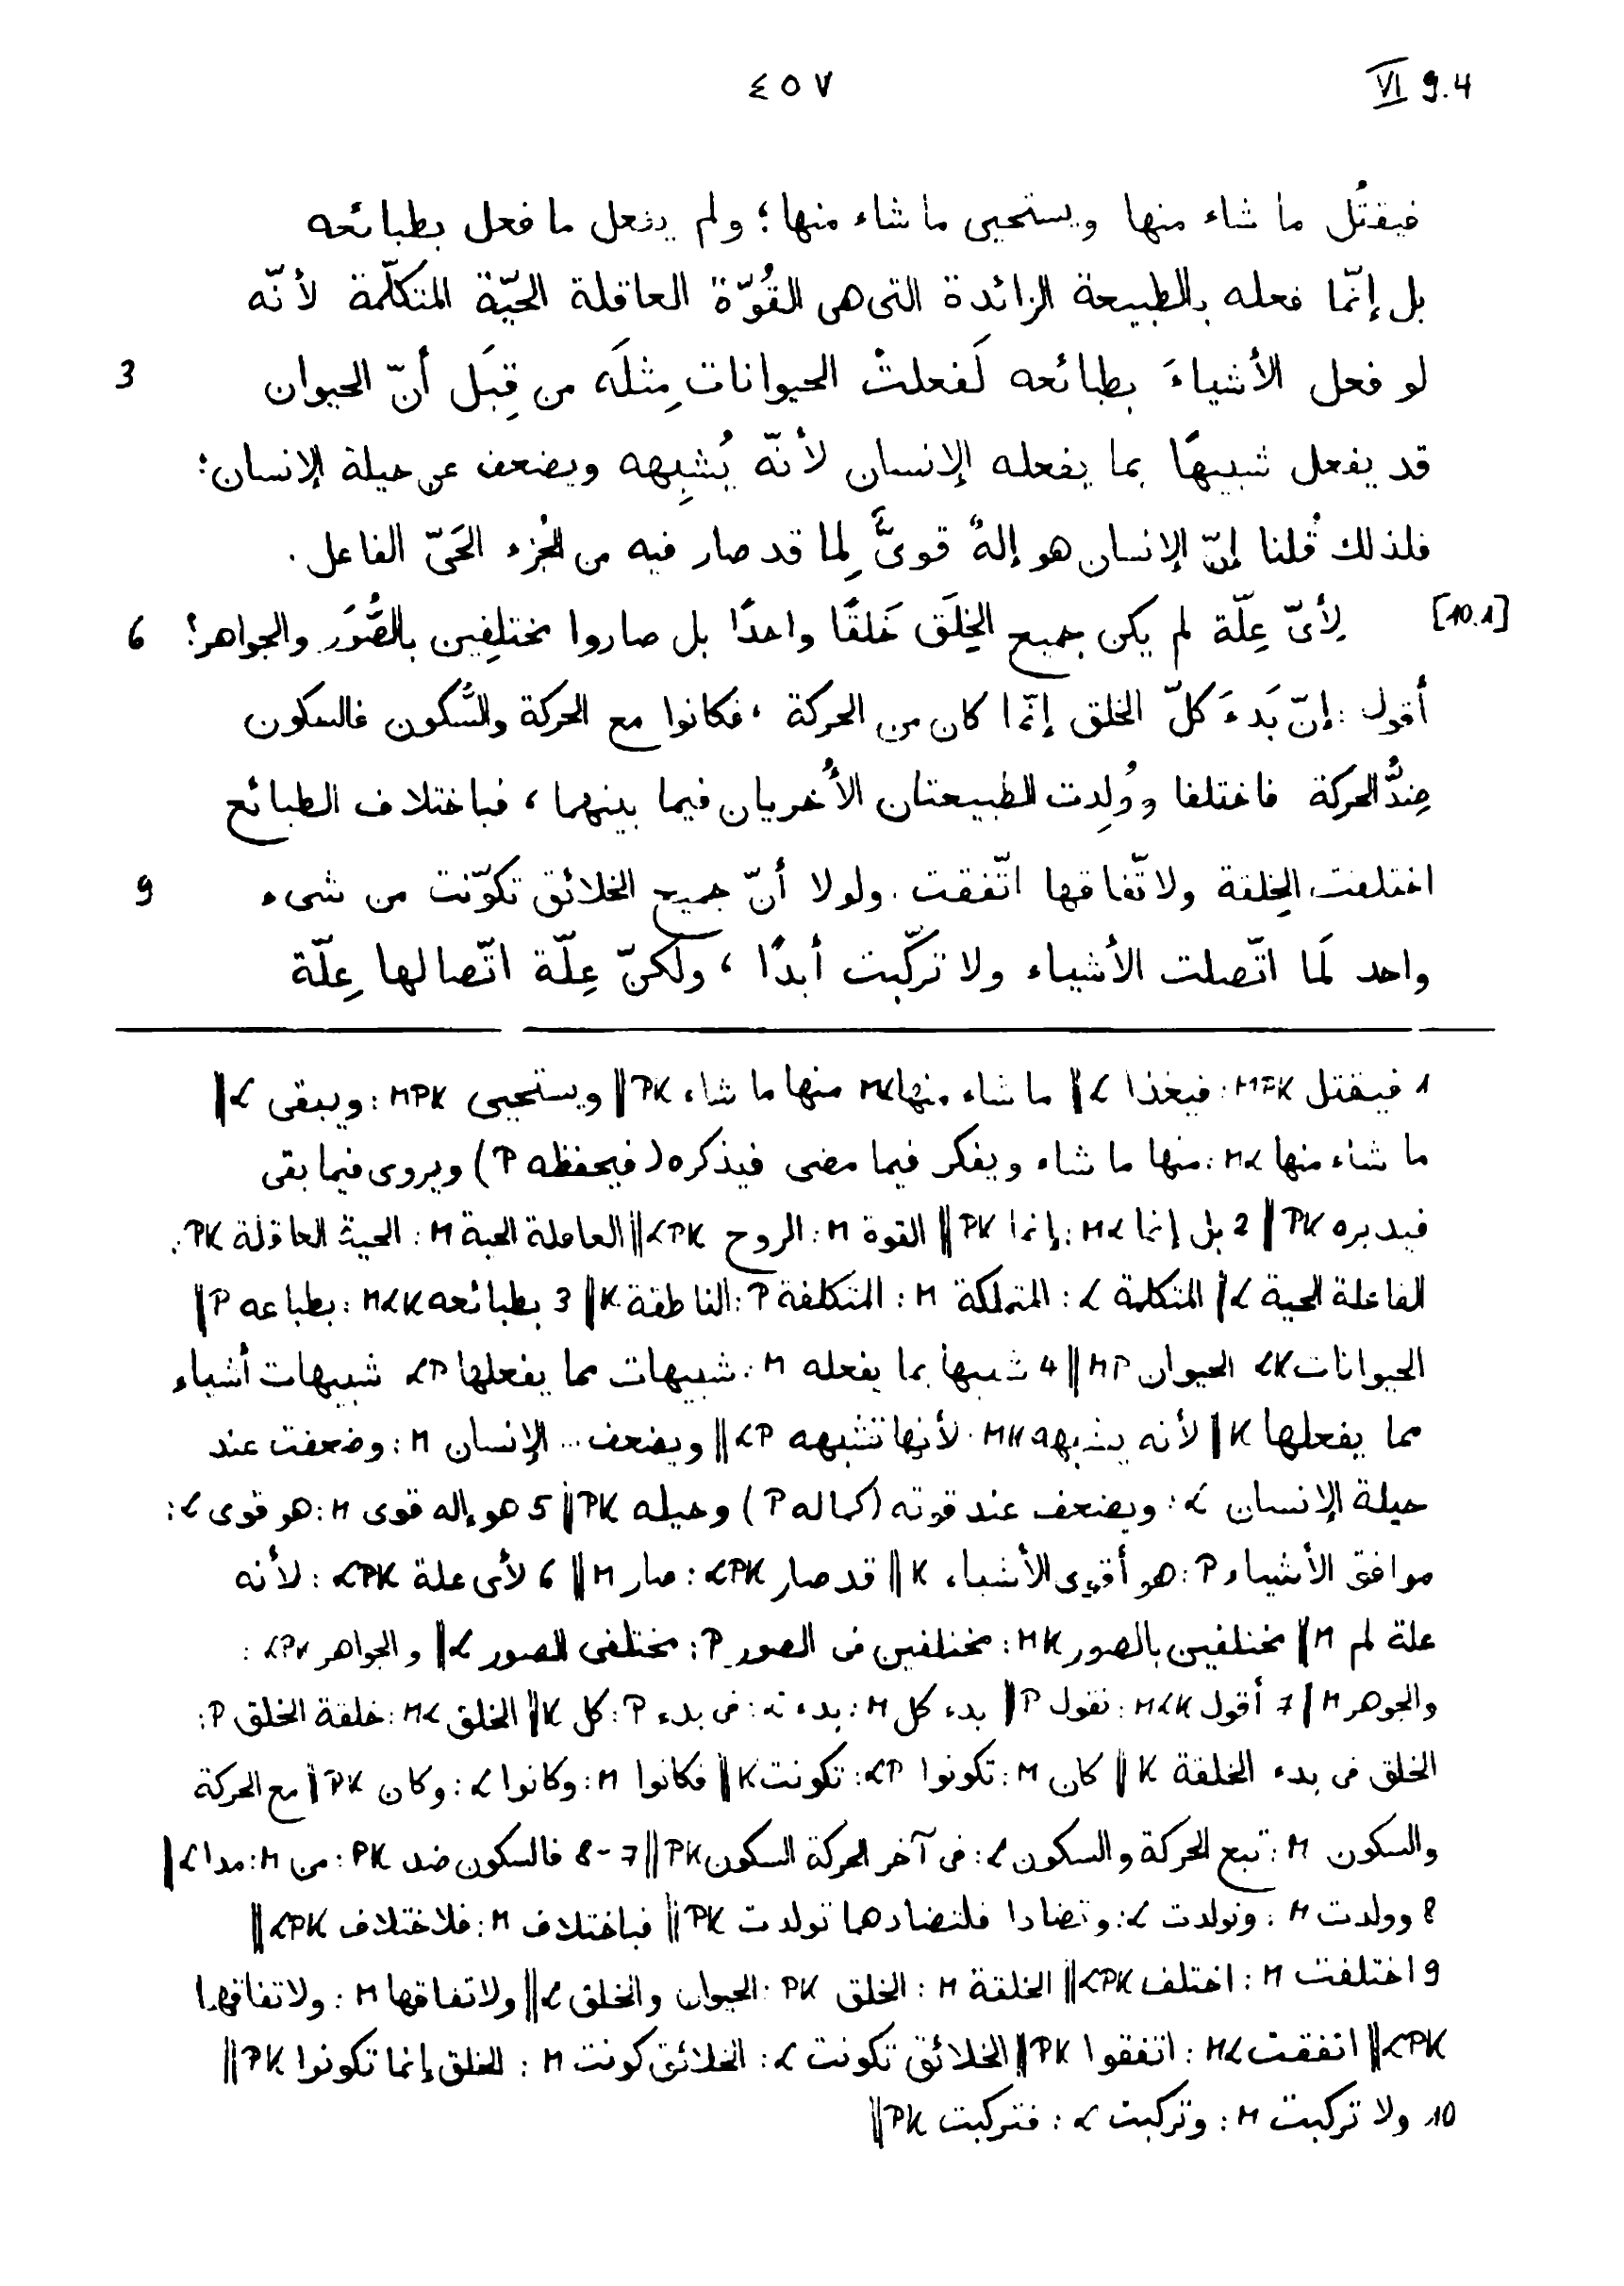 ٤٥٧
VI 9.4
فيقتُل ما شاء منها ويستحيى ما شاء منها؛ ولم يفعل ما فعل بطبائعه
بل إنّما فعله بالطبيعة الزائدة التى هى القُوّة العاقلة الحيّة المتكلّمة لأنّه
3 لو فعل الأشياءَ بطبائعه لَفعلتْ الحيوانات مِثلَه من قِبَل أنّ الحيوان
قد يفعل شبيهًا بما يفعله الإنسان لأنّه يُشبِهه ويضعف عن حيلة الإنسان؛
فلذلك قُلنا إنّ الإنسان هو إلهٌ قوىٌّ لِما قد صار فيه من الجُزء الحَىّ الفاعل.
[10.1] لِأىّ عِلّة لم يكن جميع الخِلَق خَلقًا واحدًا بل صاروا مختلِفين بالصُّوَر والجواهر؟ 6
أقول: إنّ بَدءَ كلّ الخلق إنّما كان من الحركة، فكانوا مع الحركة والسُّكون فالسكون
ضِدُّ الحركة فاختلفا ووُلِدت الطبيعتان الأُخريان فيما بينهما، فباختلاف الطبائع
9 اختلفت الخِلقة ولاتّفاقها اتّفقت. ولولا أنّ جميع الخلائق تكوّنت من شىء
واحد لَما اتّصلت الأشياء ولا تركّبت أبدًا، ولكنّ عِلّة اتّصالها عِلّة
1 فيقتل MPK: فيغذا L || ما شاء منها ML: منها ما شاء PK || ويستحيى MPK: ويبقى L ||
ما شاء منها ML: منها ما شاء ويفكر فيما مضى فيذكره (فيحفظه P) ويروى فيما بقى
فيدبره PK || 2 بل إنما ML: إنما PK || القوة M: الروح LPK || العاقلة الحية M: الحية العاقلة PK:
الفاعلة الحية L || المتكلمة L: المتملكة M: المتكلفة P: الناطقة K || 3 بطبائعه MLK: بطباعه P ||
الحيوانات LK الحيوان MP || 4 شبيها بما يفعله M: شبيهات مما يفعلها LP شبيهات أشياء
مما يفعلها K || لأنه يشبهه MK: لأنها تشبهه LP || ويضعف... الإنسان M: وضعفت عند
حيلة الإنسان L: ويضعف عند قوته (كماله P) وحيله PK || 5 هو إله قوى M: هو قوى L:
موافق الأشياء P: هو أقوى الأشياء K || قد صار LPK: صار M || 6 لأى علة LPK: لأنه
علة لم M || مختلفين بالصور MK: مختلفين فى الصور P: مختلفى الصور L || والجواهر LPK:
والجوهر M || 7 أقول MLK: نقول P || بدء كل M: بدء L: فى بدء P: كل K || الخلق ML: خلقة الخلق P:
الخلق فى بدء الخلقة K || كان M: تكونوا LP: تكونت K || فكانوا M: وكانوا L: وكان PK || مع الحركة
والسكون M: تبع الحركة والسكون L: فى آخر الحركة السكون PK || 7-8 فالسكون ضد PK: من M: مدا L ||
8 وولدت M: وتولدت L: وتضادا فلتضادهما تولدت PK || فباختلاف M: فلاختلاف LPK ||
9 اختلفت M: اختلف LPK || الخلقة M: الخلق PK: الحيوان والخلق L || ولاتفاقها M: ولاتفاقهما
LPK || اتفقت ML: اتفقوا PK || الخلائق تكونت L: الخلائق كونت M: الخلق إنما تكونوا PK ||
10 ولا تركبت M: وتركبت L: فتركبت PK ||